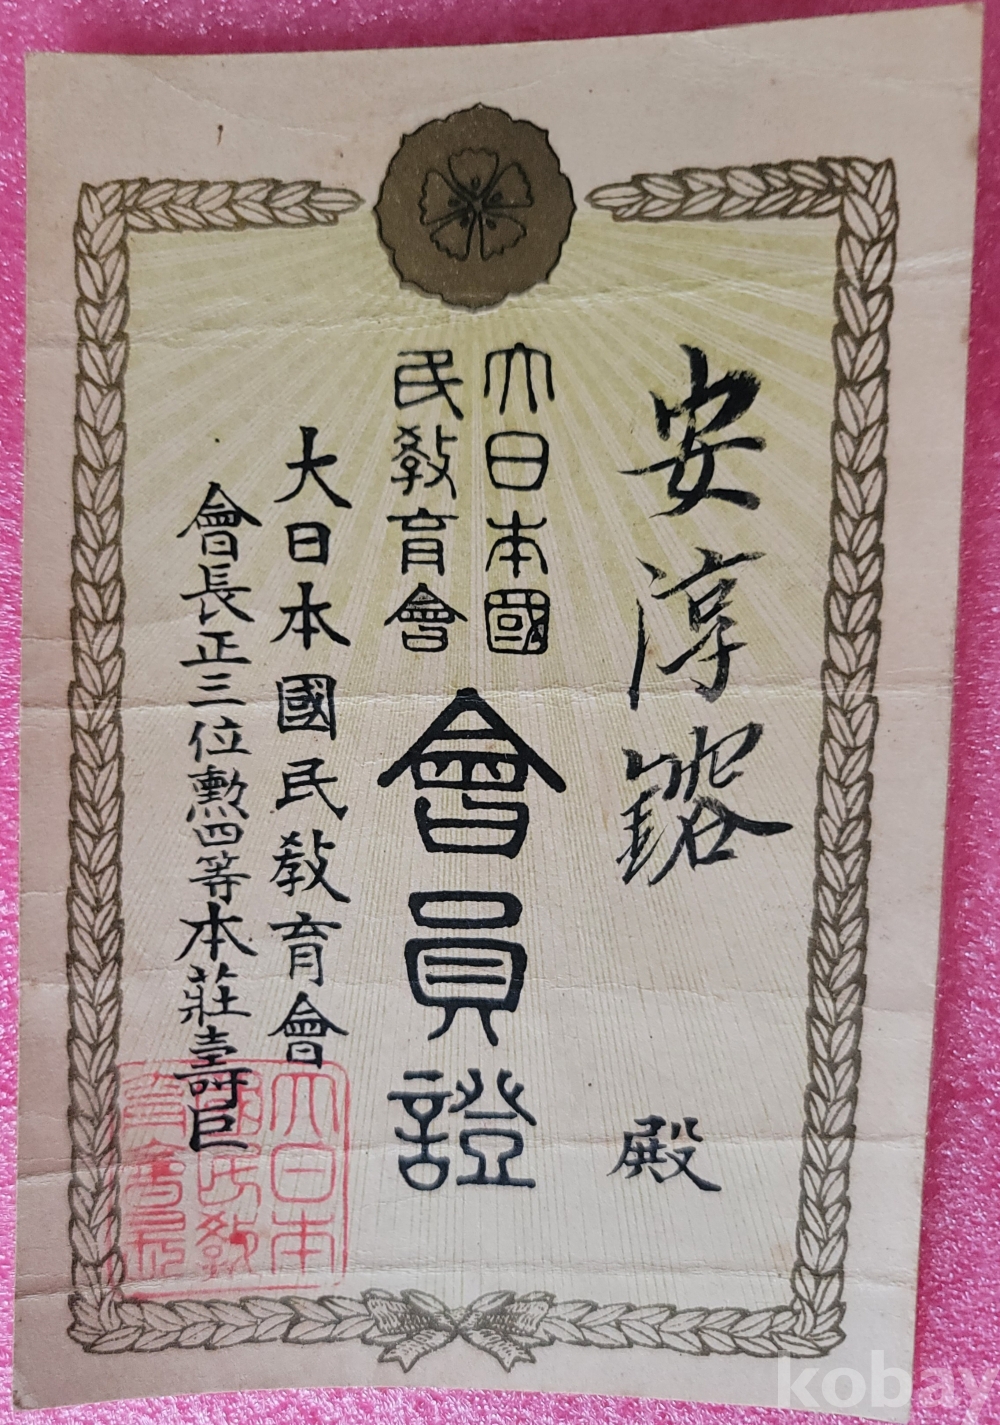 安淳鎔 殿
大日本國
民教育會
會員證
大日本國民教育會
會長正三位勲四等本莊壽巨
大日本
國民教
育會長
kobay